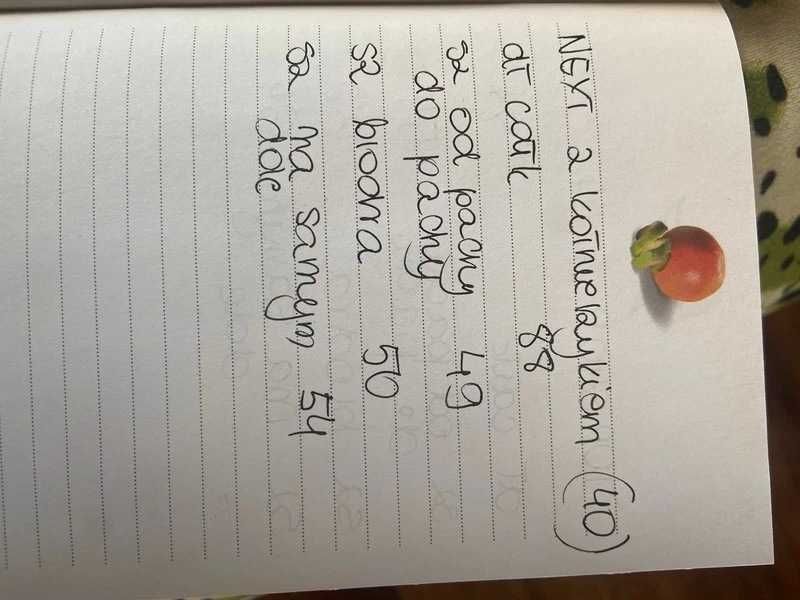 NEXT 2 kołnierzykiem (40)
dł całk 88
sz od pachy 49
do pachy
sz biodra 50
sz na samym 54
dole